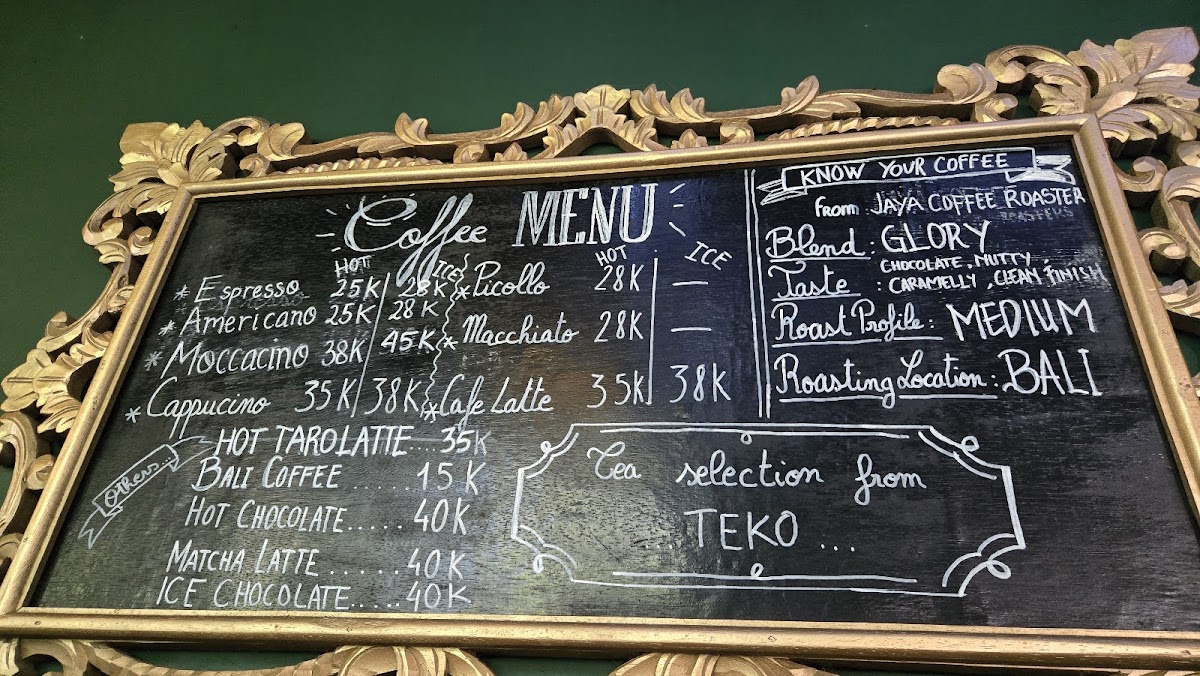 Coffee MENU
HOT ICE
* Espresso 25K 28K
* Americano 25K 28K
* Moccacino 38K 45K
* Cappucino 35K 38K
HOT ICE
* Picollo 28K —
* Macchiato 28K —
* Cafe Latte 35K 38K
Others...
HOT TAROLATTE....35K
BALI COFFEE ......15K
HOT CHOCOLATE.....40K
MATCHA LATTE ......40K
ICE CHOCOLATE.....40K
KNOW YOUR COFFEE
from JAYA COFFEE ROASTER
ROASTERS
Blend : GLORY
Taste : CHOCOLATE, NUTTY,
CARAMELLY, CLEAN FINISH
Roast Profile : MEDIUM
Roasting Location : BALI
Tea selection from
... TEKO ...